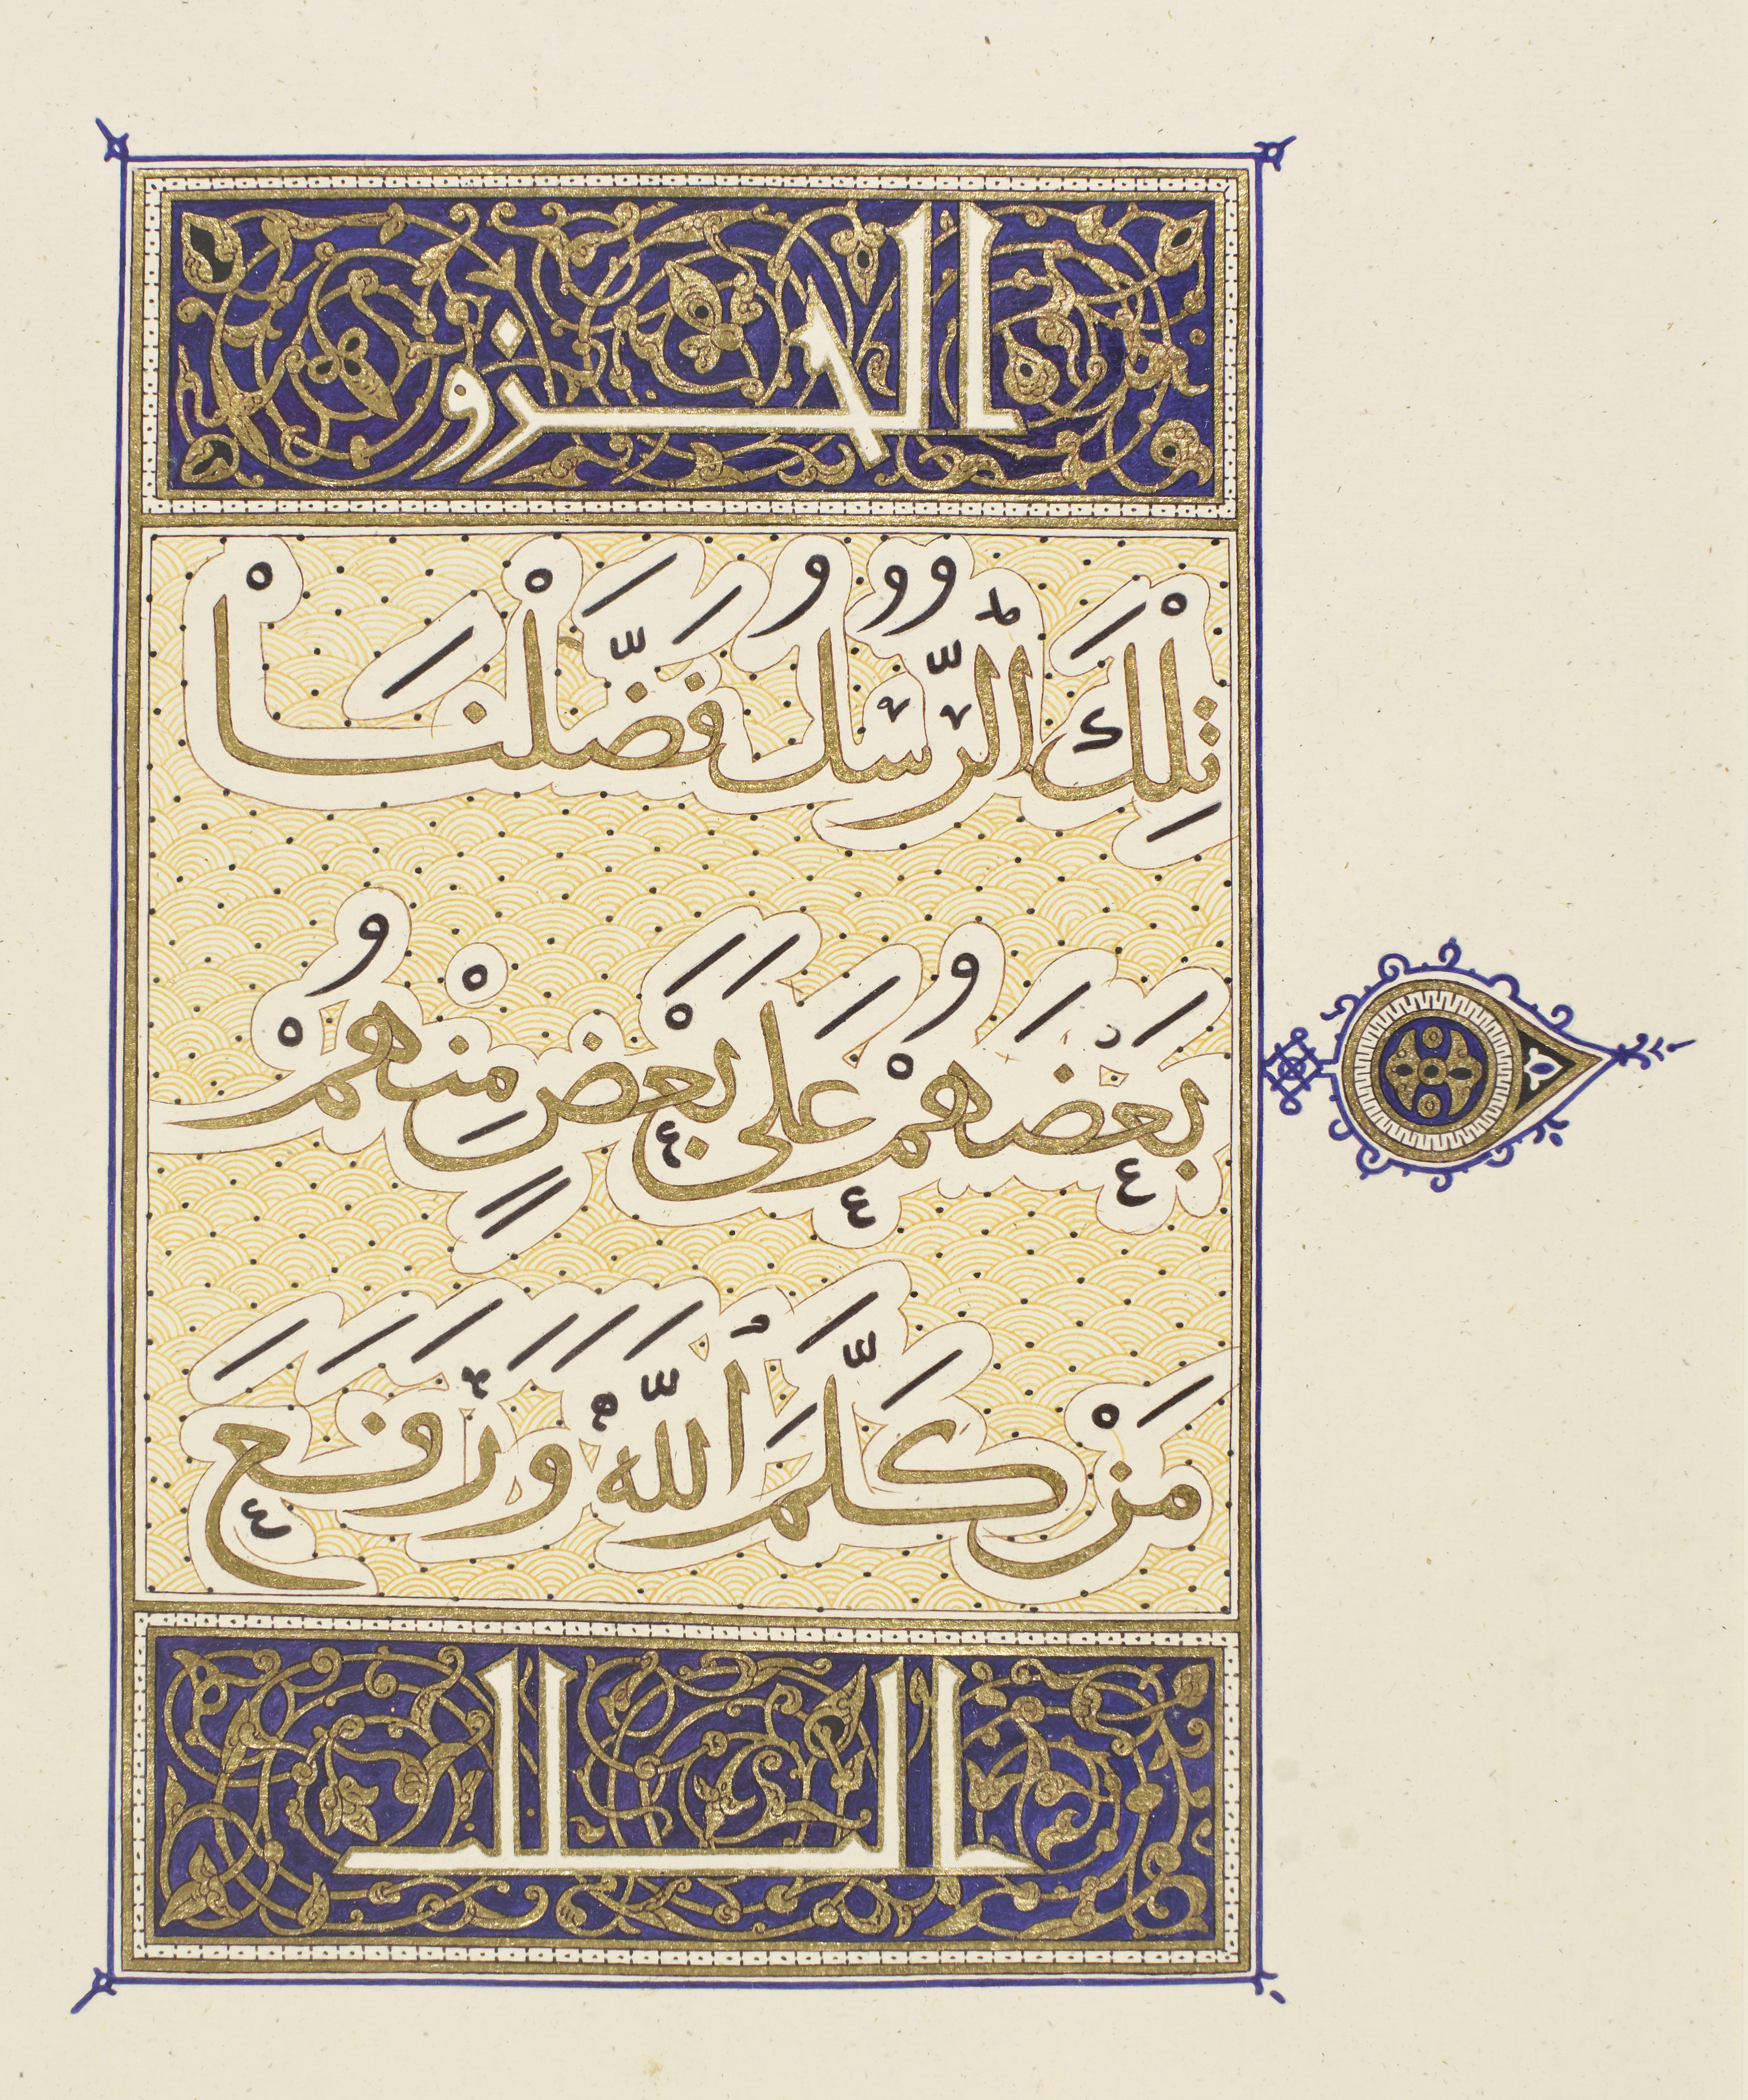 الجزو
تِلْكَ ٱلرُّسُلُ فَضَّلْنَا
بَعْضَهُمْ عَلَى بَعْضٍ مِنْهُمْ
مَنْ كَلَّمَ ٱللَّهُ وَرَفَعَ
الثالث